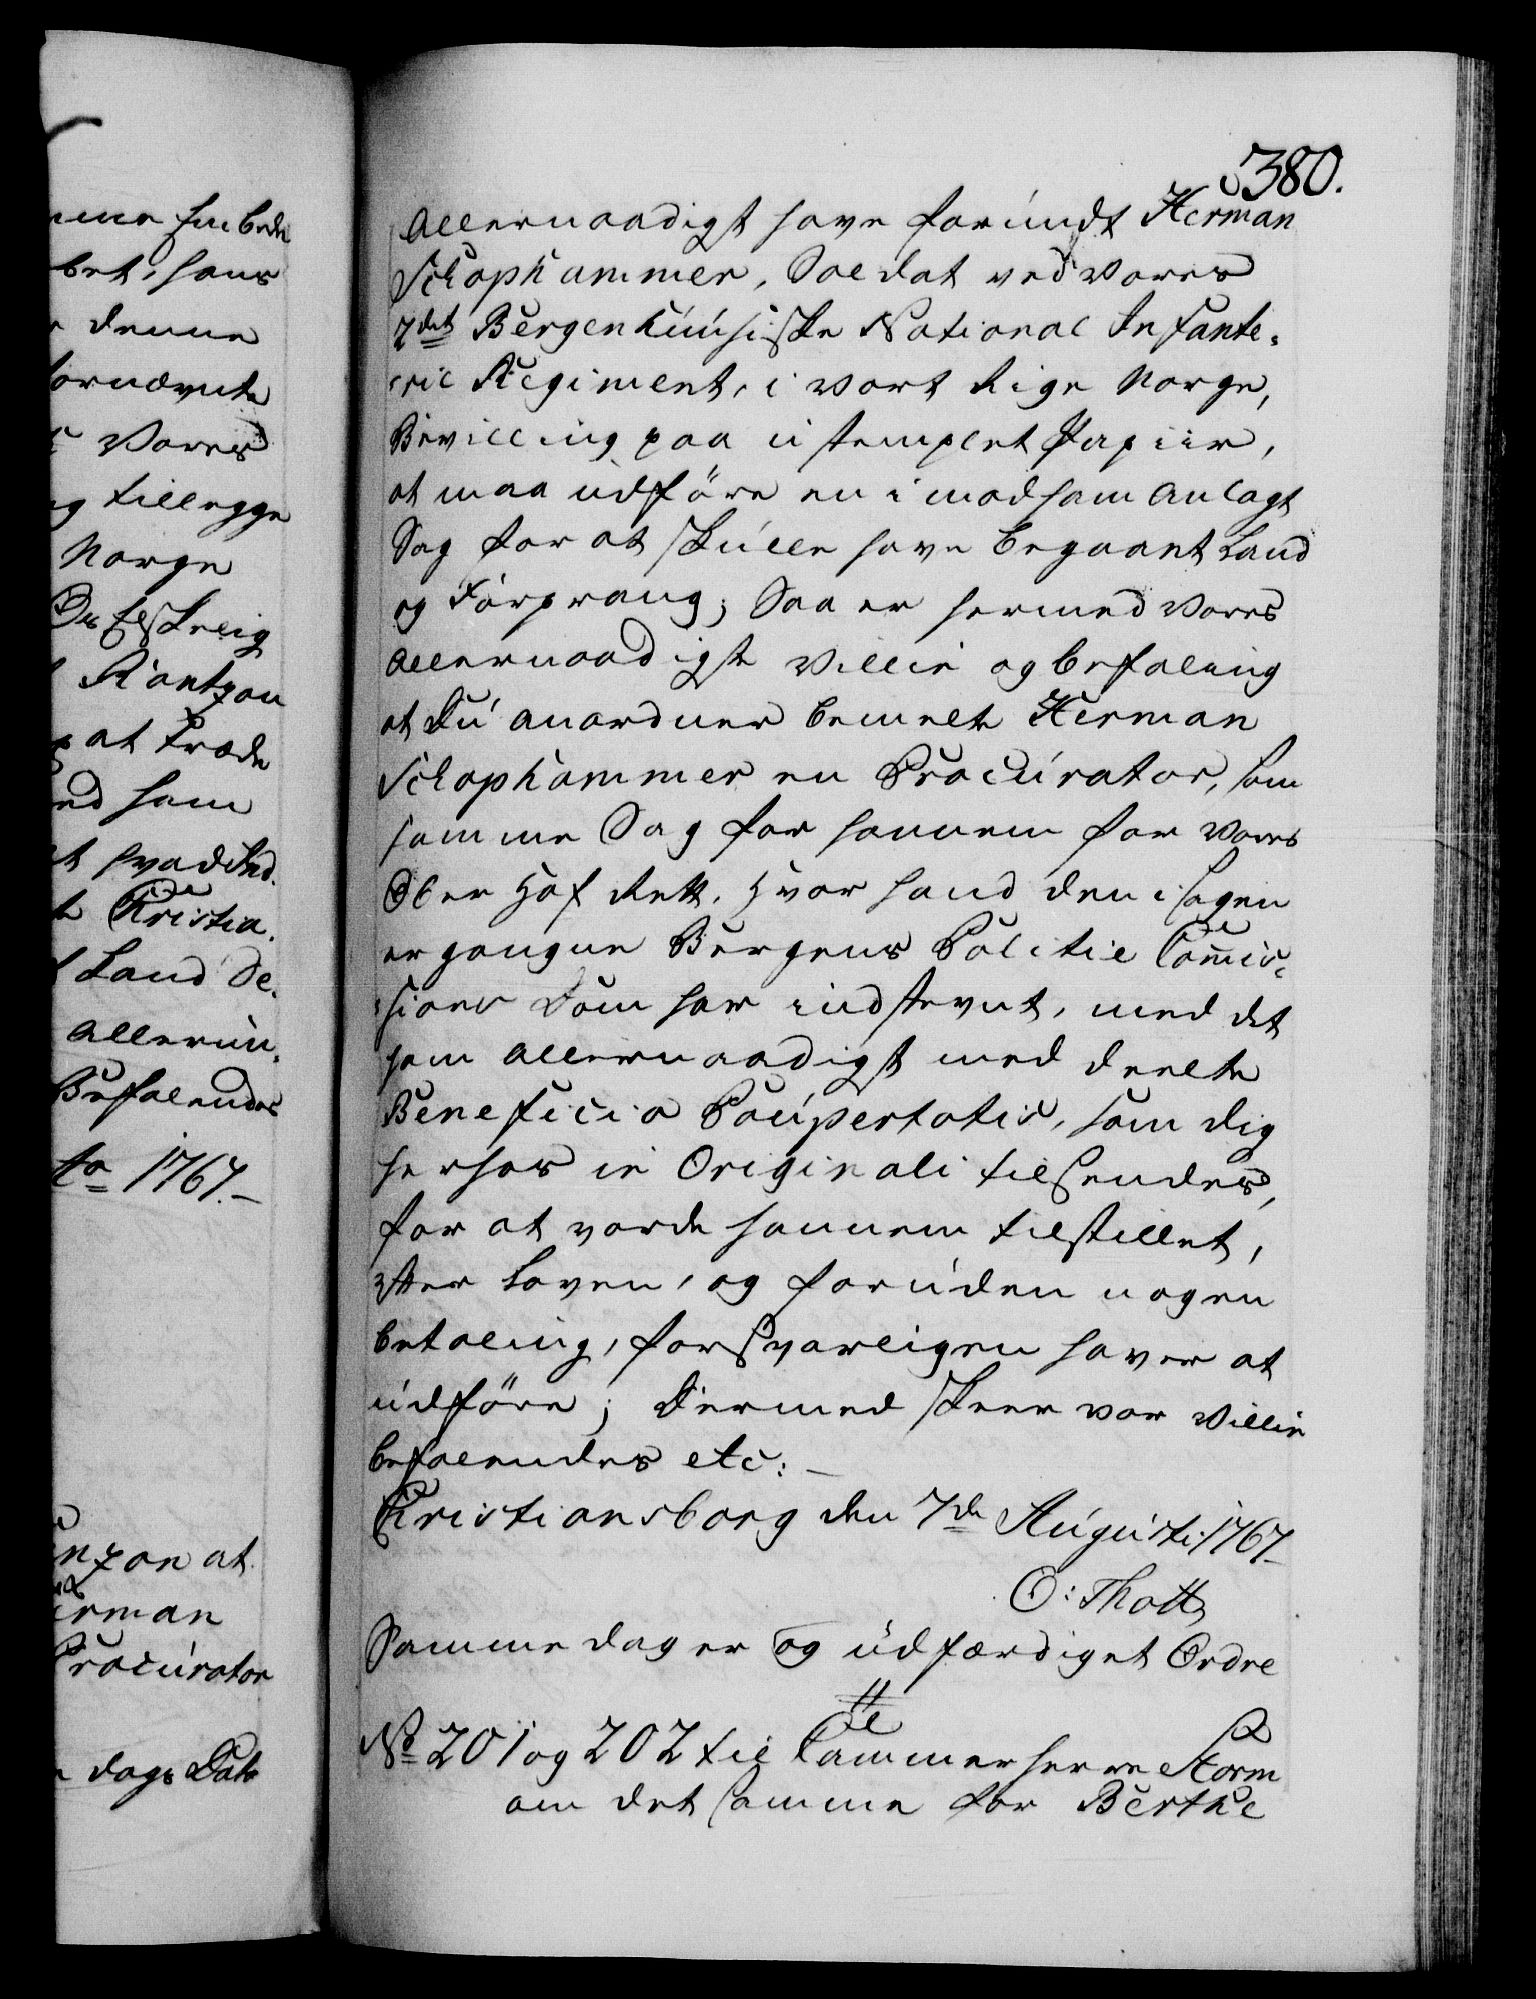 380.
Allernaadigst have forundt Herman
Schophammer, Soldat ved Vores
2det Bergenhuusiske National Infante-
rie Regiment, i Vort Rige Norge,
Bevilling paa ustemplet Papiir,
at maa udføre en imod ham anlagt
Sag for at skulle have begaaet Land
og Forprang; Saa er hermed Vores
allernaadigste Villie og befaling
at Du anordner bemelte Herman
Schophammer en Procurator, som
samme Sag for hannem for Vores
Ober Hof Rett, hvor hand den i sagen
ergangne Bergens Politie Com̄is-
sions Dom har indstevnt, med det
ham allernaadigst meddeelte
Beneficio Paupertatis, som dig
herhos in Originali tilsendes,
for at vorde hannem tilstillet,
efter Loven, og foruden nogen
betaling, forsvarligen haver at
udføre; Dermed skeer vor Villie
befalendes etc:
Christiansborg den 7de Augusti 1767
O: Thott
Samme dag er og udfærdiget Ordre
til
No 201 og 202 til Cammerherre Storm
om det samme for Berthe
sin bede
bet, hans
denne
fornævnte
Vores
og tillegge
Norge
Du Elskelig
Rantzon
at træde
ed ham
hvad Ind-
Christia-
Land Se-
allerun-
Befalendes
to 1767.
nzon at
erman
Procurator
dags Dato